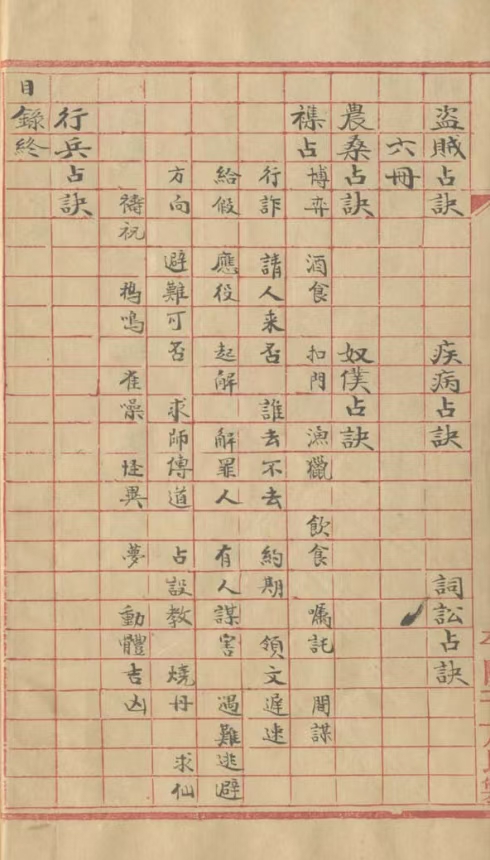 盜賊占訣 疾病占訣 詞訟占訣
六冊
農桑占訣 奴僕占訣
襍占 博弈 酒食 扣門 漁獵 飲食 囑託 間諜
行詐 請人来否 誰去不去 約期 領文遲速
給假 應役 起解 解罪人 有人謀害 遇難逃避
方向 避難可否 求師傳道 占設教 燒丹 求仙
禱祝 鴉鳴 雀噪 怪異 夢 動體吉凶
行兵占訣
目錄終